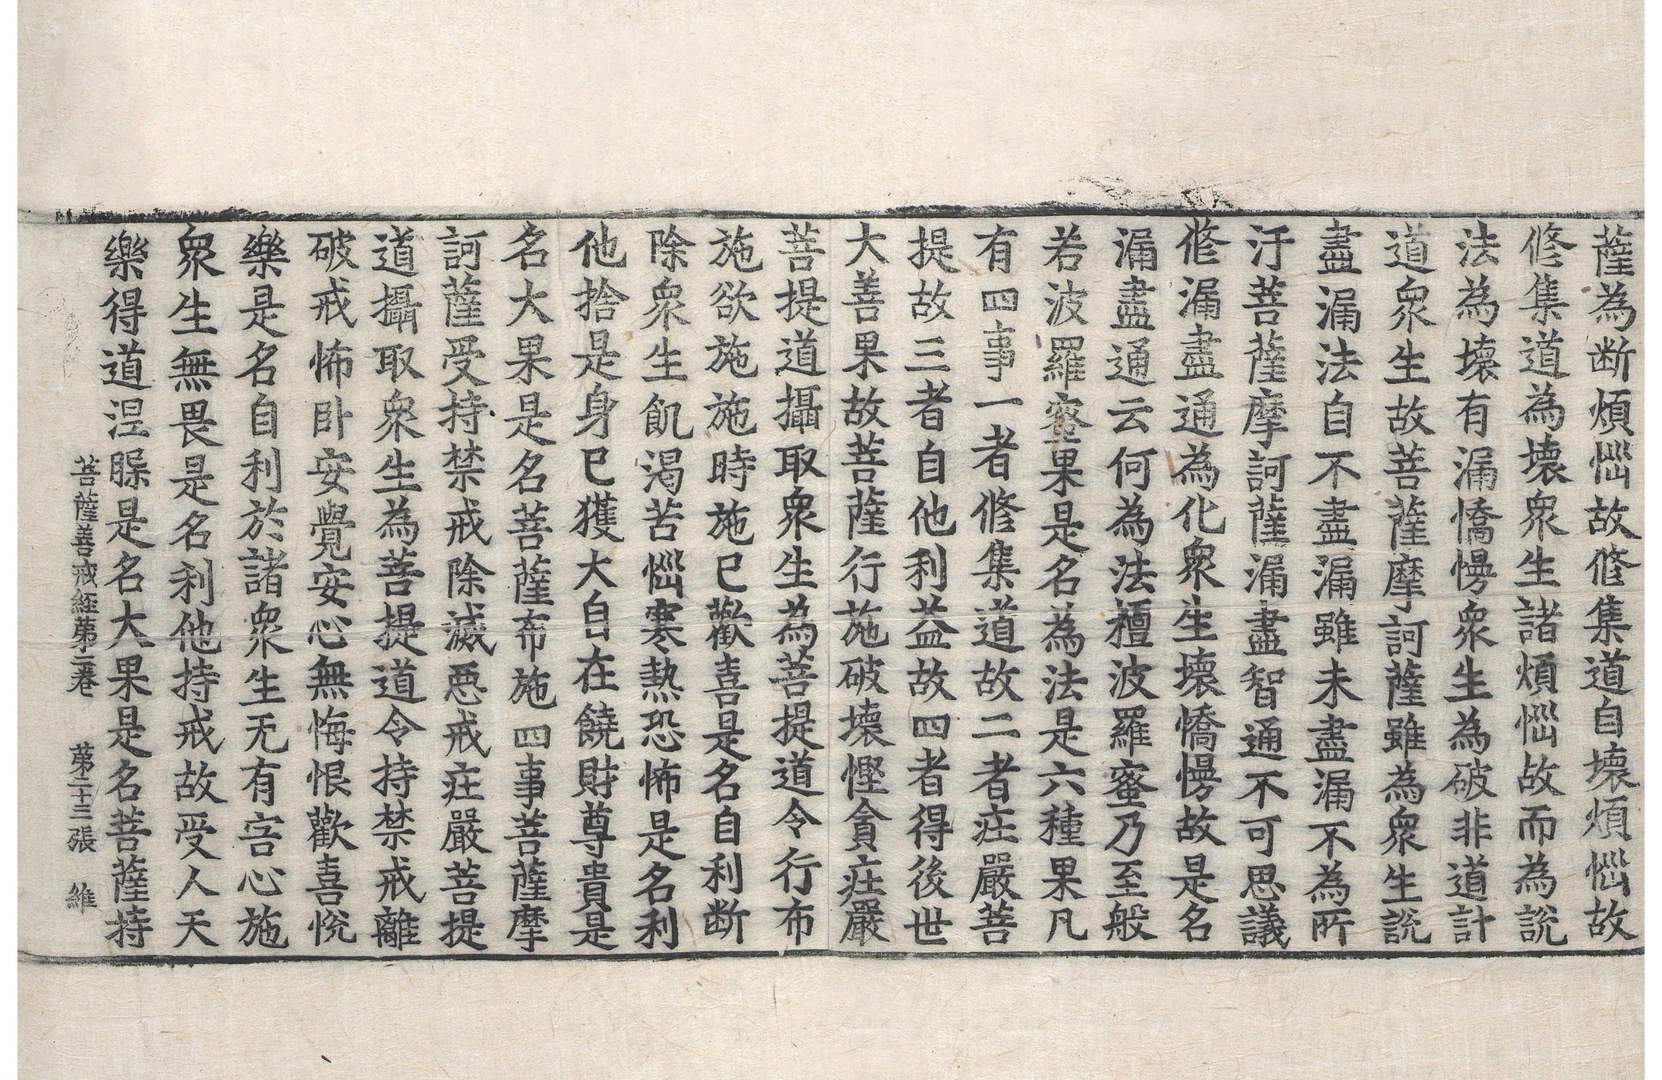 薩為断煩惱故修集道自壞煩惱故
修集道為壞衆生諸煩惱故而為說
法為壞有漏憍慢衆生為破非道計
道衆生故菩薩摩訶薩雖為衆生說
盡漏法自不盡漏雖未盡漏不為所
汙菩薩摩訶薩漏盡智通不可思議
修漏盡通為化衆生壞憍慢故是名
漏盡通云何為法檀波羅蜜乃至般
若波羅蜜果是名為法是六種果凡
有四事一者修集道故二者莊嚴菩
提故三者自他利益故四者得後世
大善果故菩薩行施破壞慳貪莊嚴
菩提道攝取衆生為菩提道令行布
施欲施施時施已歡喜是名自利斷
除衆生飢渴苦惱寒熱恐怖是名利
他捨是身已獲大自在饒財尊貴是
名大果是名菩薩布施四事菩薩摩
訶薩受持禁戒除滅惡戒莊嚴菩提
道攝取衆生為菩提道令持禁戒離
破戒怖卧安覺安心無悔恨歡喜悅
樂是名自利於諸衆生无有害心施
衆生無畏是名利他持戒故受人天
樂得道涅槃是名大果是名菩薩持
菩薩善戒經第二卷　第二十三張　維